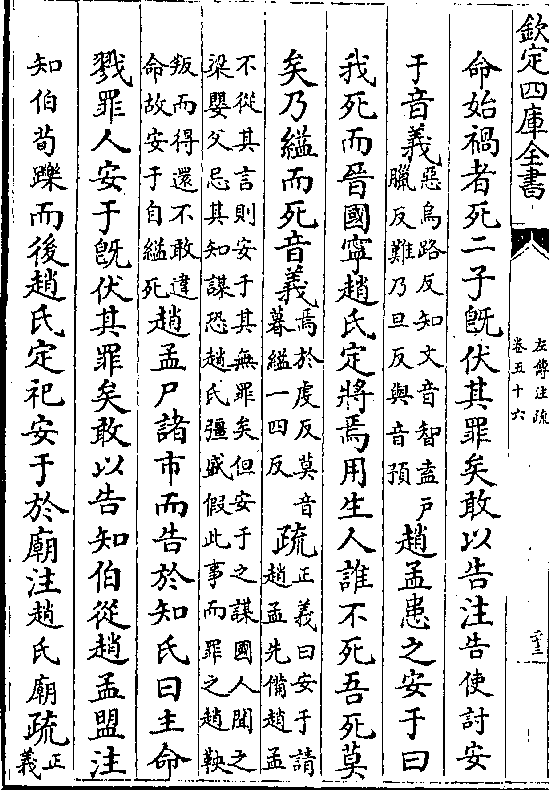 欽定四庫全書
左傳注疏
卷五十六
命始禍者死二子既伏其罪矣敢以告注告使討安
于音義惡烏路反知文音智盍戶
臘反難乃旦反與音預趙孟患之安于曰
我死而晉國寧趙氏定將焉用生人誰不死吾死莫
矣乃縊而死音義焉於虔反莫音
暮縊一四反疏正義曰安于請
趙孟先備趙孟
不從其言則安于其無罪矣但安于之謀國人聞之
梁嬰父忌其知謀恐趙氏彊盛假此事而罪之趙鞅
叛而得還不敢違
命故安于自縊死趙孟尸諸市而告於知氏曰主命
戮罪人安于既伏其罪矣敢以告知伯從趙孟盟注
知伯荀躒而後趙氏定祀安于於廟注趙氏廟疏正
義